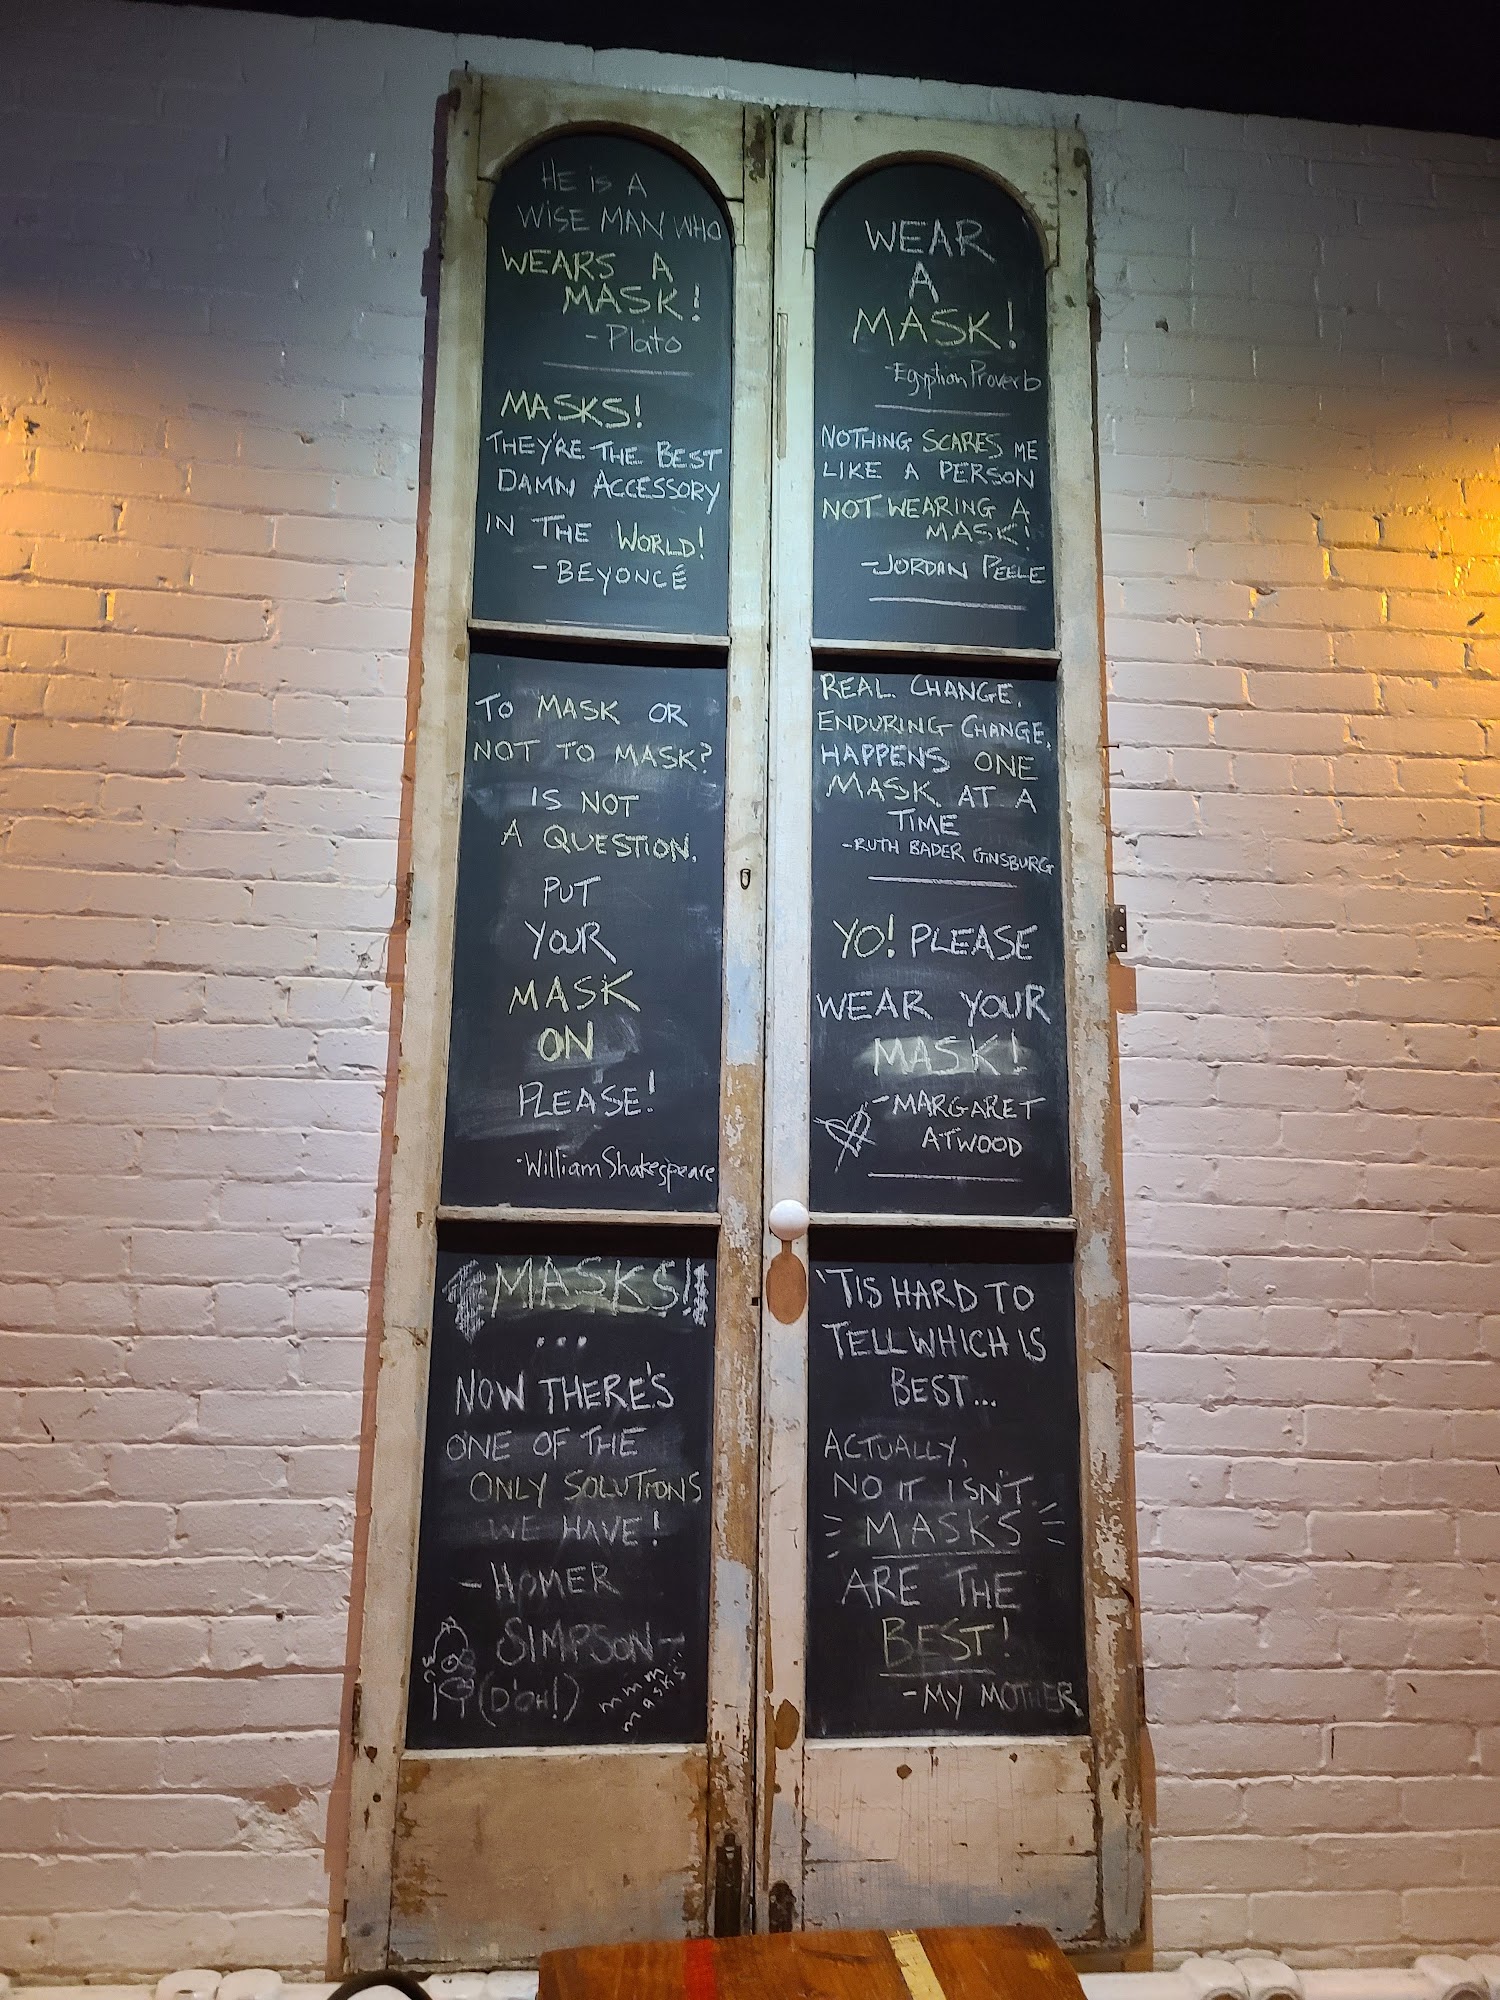 HE is A
WISE MAN WHO
WEARS A
MASK!
-Plato
MASKS!
THEY'RE THE BEST
DAMN ACCESSORY
IN THE WORLD!
-BEYONCÉ
TO MASK OR
NOT TO MASK?
IS NOT
A QUESTION.
PUT
YOUR
MASK
ON
PLEASE!
-William Shakespeare
MASKS!
...
NOW THERE'S
ONE OF THE
ONLY SOLUTIONS
WE HAVE!
-HOMER
SIMPSON-
(D'OH!)
mmm
masks..
WEAR
A
MASK!
-Egyptian Proverb
NOTHING SCARES ME
LIKE A PERSON
NOT WEARING A
MASK!
-JORDAN PEELE
REAL CHANGE,
ENDURING CHANGE,
HAPPENS ONE
MASK AT A
TIME
-RUTH BADER GINSBURG
YO! PLEASE
WEAR YOUR
MASK!
-MARGARET
ATWOOD
'TIS HARD TO
TELL WHICH IS
BEST...
ACTUALLY,
NO IT ISN'T.
MASKS
ARE THE
BEST!
-MY MOTHER